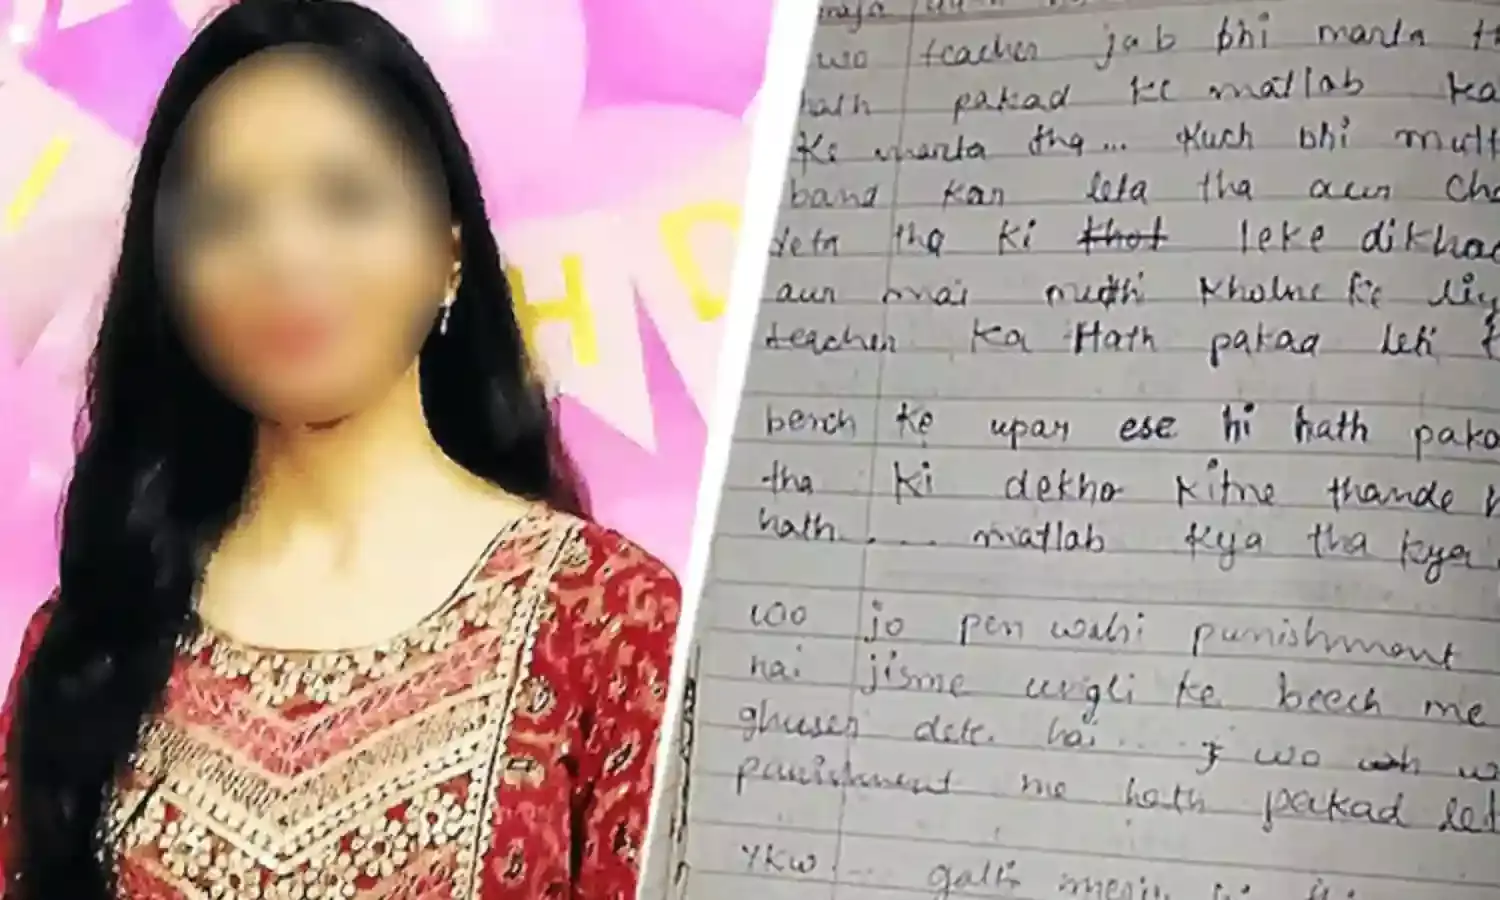 H D
wo teacher jab bhi marta
hath pakad ke matlab ka
ke marta tha... Kuch bhi mutt
band kar leta tha aur Cha
deta tha ki thot leke dikhao
aur mai muthi kholne ke liy
teacher ka Hath pakad leti t
bench ke upar ese hi hath paka
tha ki dekho kitne thande h
hath.... matlab kya tha kya
woo jo pen wahi punishment
hai jisme ungli ke beech me
ghuser dete hai.... wo
punishment me hath pakad let
YKW... galti